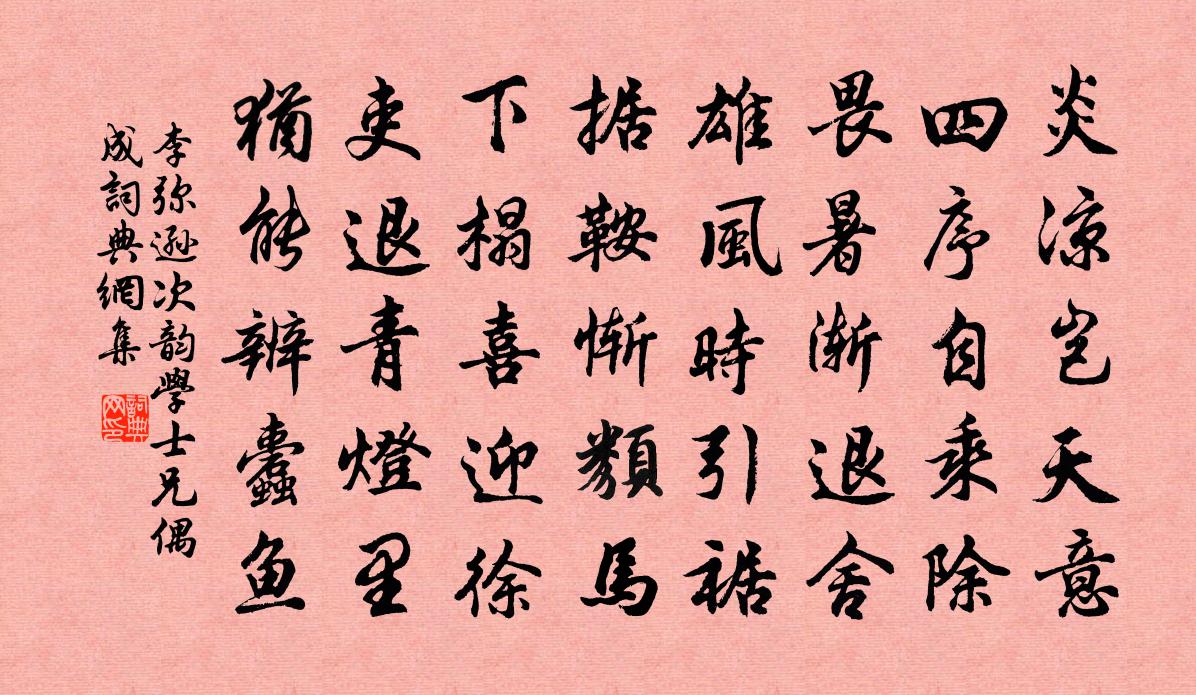 炎涼豈天意
四序自乘除
畏暑漸退舍
雄風時引裾
据鞍慚類馬
下榻喜迎徐
吏退青燈里
猶能辨蠹魚
李弥遜次韵學士兄偶
成詞典網集
詞典
网印